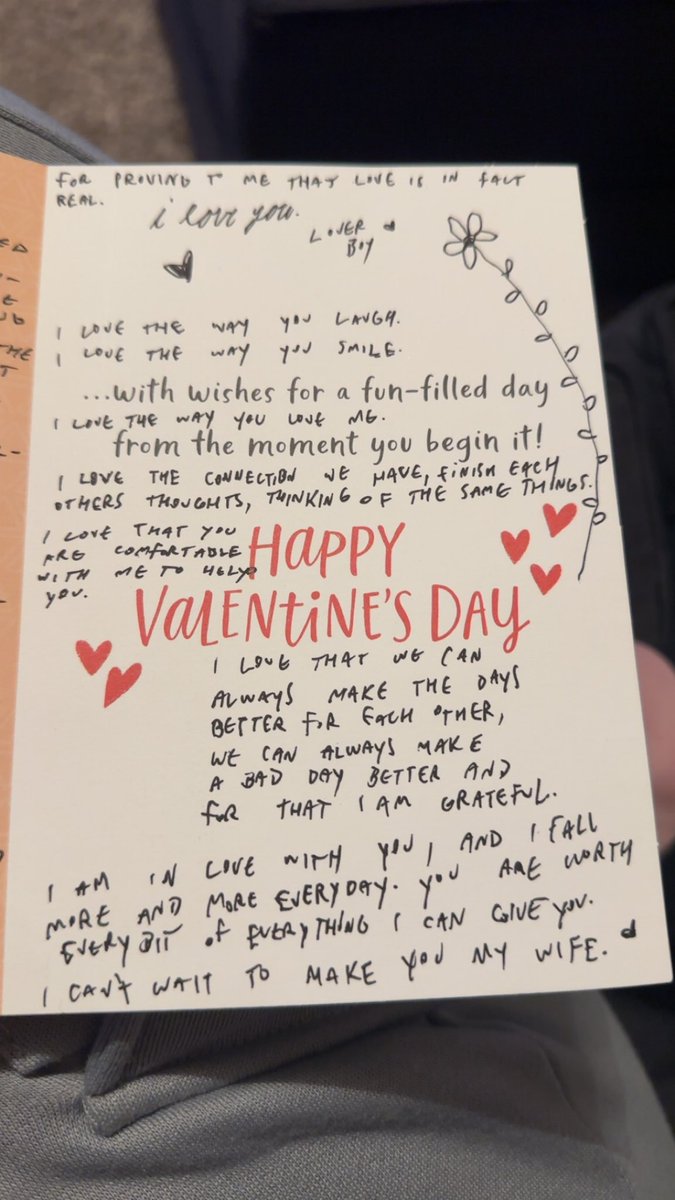 FOR PROVING TO ME THAT LOVE IS IN FACT
REAL.
i love you.
LOVER
BOY
I LOVE THE WAY YOU LAUGH.
I LOVE THE WAY YOU SMILE.
...with wishes for a fun-filled day
I LOVE THE WAY YOU LOVE ME.
from the moment you begin it!
I LOVE THE CONNECTION WE HAVE, FINISH EACH
OTHERS THOUGHTS, THINKING OF THE SAME THINGS.
I LOVE THAT YOU
ARE COMFORTABLE
WITH ME TO HELP
YOU.
HAPPY
VALENTINE'S DAY
I LOVE THAT WE CAN
ALWAYS MAKE THE DAYS
BETTER FOR EACH OTHER,
WE CAN ALWAYS MAKE
A BAD DAY BETTER AND
FOR THAT I AM GRATEFUL.
I AM IN LOVE WITH YOU, AND I FALL
MORE AND MORE EVERYDAY. YOU ARE WORTH
EVERY BIT OF EVERYTHING I CAN GIVE YOU.
I CAN'T WAIT TO MAKE YOU MY WIFE.